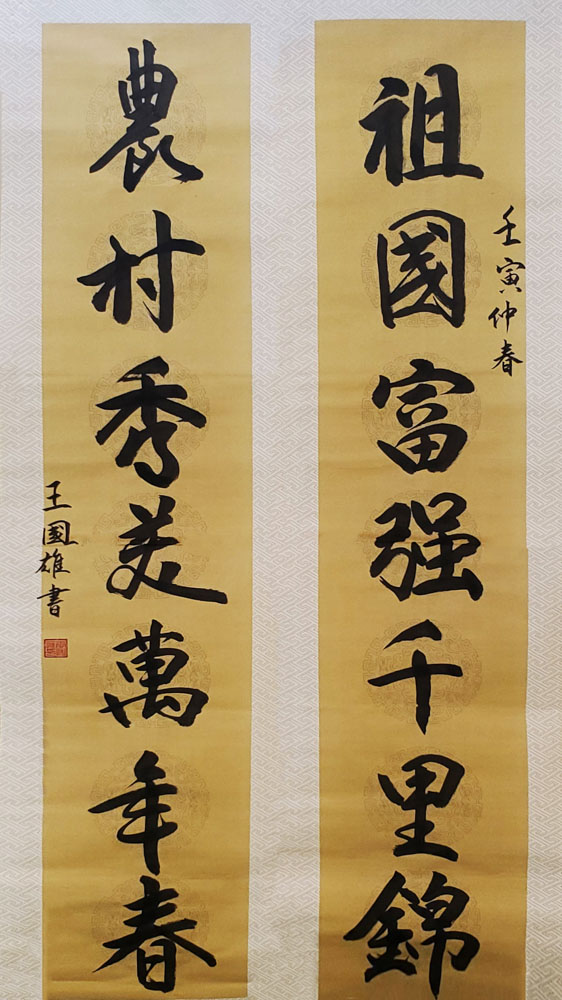 壬寅仲春
祖國富强千里錦
農村秀美萬年春
王國雄書